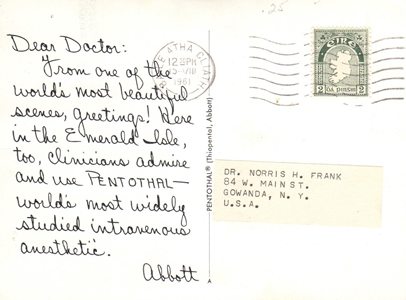 Dear Doctor:
From one of the
world's most beautiful
scenes, greetings! Here
in the Emerald Isle,
too, clinicians admire
and use PENTOTHAL—
world's most widely
studied intravenous
anesthetic.
Abbott
PENTOTHAL® (Thiopental, Abbott)
.25
ATHA CLIATH
12
1961
EIRE
2 2
DR. NORRIS H. FRANK
84 W. MAIN ST.
GOWANDA, N. Y.
U.S.A.